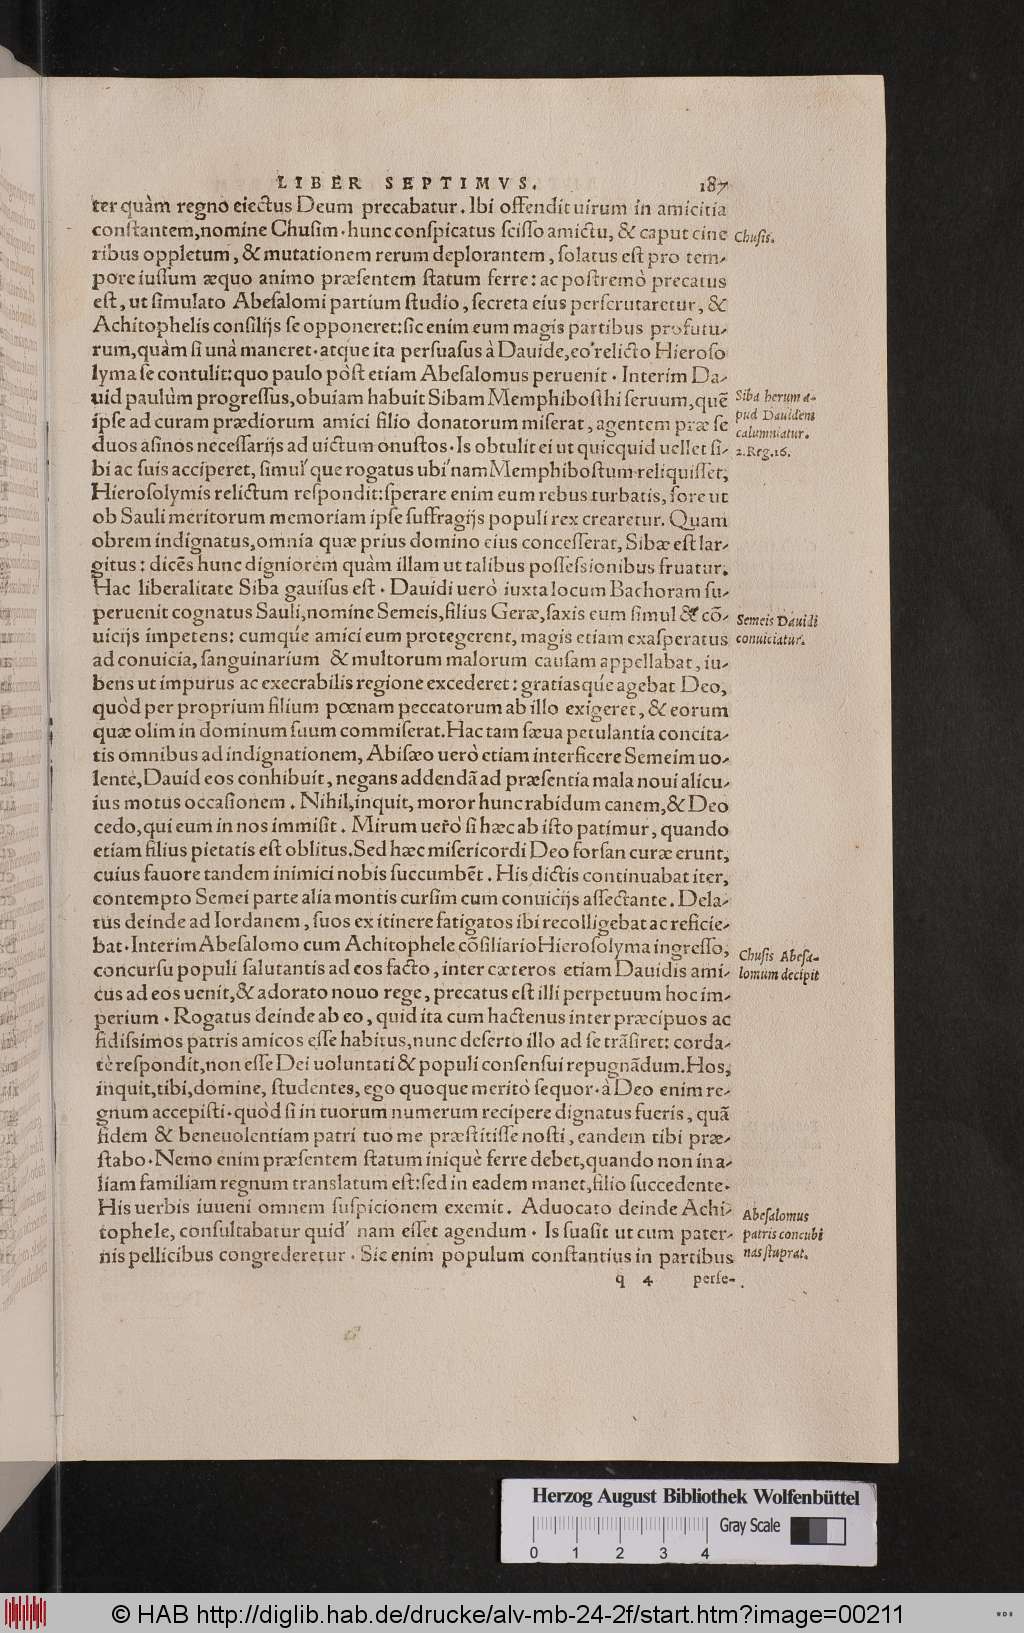 LIBER SEPTIMVS. 187
ter quàm regno eiectus Deum precabatur. Ibi offendit uirum in amicitia
constantem, nomine Chusim. hunc conspicatus scisso amictu, & caput cine
Chusis.
ribus oppletum, & mutationem rerum deplorantem, solatus est pro tem-
pore iussum æquo animo præsentem statum ferre: ac postremò precatus
est, ut simulato Abesalomi partium studio, secreta eius perscrutaretur, &
Achitophelis consilijs se opponeret: sic enim eum magis partibus profutu-
rum, quàm si unà maneret. atque ita persuasus à Dauide, eo relicto Hieroso
lyma se contulit: quo paulo pòst etiam Abesalomus peruenit. Interim Da-
uid paulùm progressus, obuiam habuit Sibam Memphibosthi seruum, quē
ipse ad curam prædiorum amici filio donatorum miserat, agentem præ se
duos asinos necessarijs ad uictum onustos. Is obtulit ei ut quicquid uellet si-
Siba herum a-
pud Dauidem
calumniatur.
2. Reg. 16.
bi ac suis acciperet, simul que rogatus ubi nam Memphibostum reliquisset,
Hierosolymis relictum respondit: sperare enim eum rebus turbatis, fore ut
ob Sauli meritorum memoriam ipse suffragijs populi rex crearetur. Quam
obrem indignatus, omnia quæ prius domino eius concesserat, Sibæ est lar-
gitus: dicēs hunc digniorem quàm illam ut talibus possessionibus fruatur.
Hac liberalitate Siba gauisus est. Dauidi uerò iuxta locum Bachoram su-
peruenit cognatus Sauli, nomine Semeis, filius Geræ, saxis eum simul & cō-
uicijs impetens: cumqúe amici eum protegerent, magis etiam exasperatus
Semeis Dauidi
conuiciatur.
ad conuicia, sanguinarium & multorum malorum causam appellabat, iu-
bens ut impurus ac execrabilis regione excederet: gratiasqúe agebat Deo,
quòd per proprium filium pœnam peccatorum ab illo exigeret, & eorum
quæ olim in dominum suum commiserat. Hac tam sæua petulantia concita-
tis omnibus ad indignationem, Abisæo uerò etiam interficere Semeim uo-
lente, Dauid eos cohibuit, negans addendā ad præsentia mala noui alicu-
ius motus occasionem. Nihil, inquit, moror hunc rabidum canem, & Deo
cedo, qui eum in nos immisit. Mirum uerò si hæc ab isto patimur, quando
etiam filius pietatis est oblitus. Sed hæc misericordi Deo forsan curæ erunt,
cuius fauore tandem inimici nobis succumbēt. His dictis continuabat iter,
contempto Semei parte alia montis cursim cum conuicijs assectante. Dela-
tus deinde ad Iordanem, suos ex itinere fatigatos ibi recolligebat ac reficie-
bat. Interim Abesalomo cum Achitophele cōsiliario Hierosolyma ingresso,
concursu populi salutantis ad eos facto, inter cæteros etiam Dauidis ami-
Chusis Abesa-
lomum decipit
cus ad eos uenit, & adorato nouo rege, precatus est illi perpetuum hoc im-
perium. Rogatus deinde ab eo, quid ita cum hactenus inter præcipuos ac
fidissimos patris amicos esse habitus, nunc deserto illo ad se trāsiret: corda-
tè respondit, non esse Dei uoluntati & populi consensui repugnādum. Hos,
inquit, tibi, domine, studentes, ego quoque meritò sequor. à Deo enim re-
gnum accepisti. quòd si in tuorum numerum recipere dignatus fueris, quā
fidem & beneuolentiam patri tuo me præstitisse nosti, eandem tibi præ-
stabo. Nemo enim præsentem statum iniquè ferre debet, quando non in a-
liam familiam regnum translatum est: sed in eadem manet, filio succedente.
His uerbis iuueni omnem suspicionem exemit. Aduocato deinde Achi-
tophele, consultabatur quid nam esset agendum. Is suasit ut cum pater-
nis pellicibus congrederetur. Sic enim populum constantius in partibus
Abesalomus
patris concubi
nas stuprat.
q 4 perse-
Herzog August Bibliothek Wolfenbüttel
Gray Scale
0 1 2 3 4
© HAB http://diglib.hab.de/drucke/alv-mb-24-2f/start.htm?image=00211